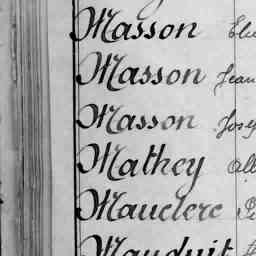 Masson
Masson Jean
Masson
Mathey
Mauclerc
Mauduit